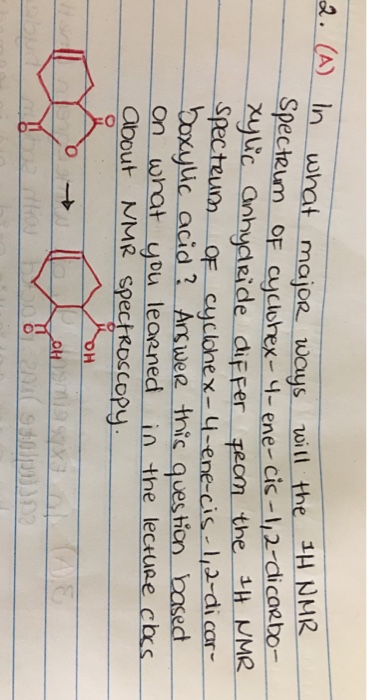 2. (A) In what major ways will the 1H NMR
spectrum of cyclohex-4-ene-cis-1,2-dicarbo-
xylic anhydride differ from the 1H NMR
spectrum of cyclohex-4-ene-cis-1,2-dicar-
boxylic acid? Answer this question based
on what you learned in the lecture class
about NMR spectroscopy.
O
O
O
→
O
OH
O
OH